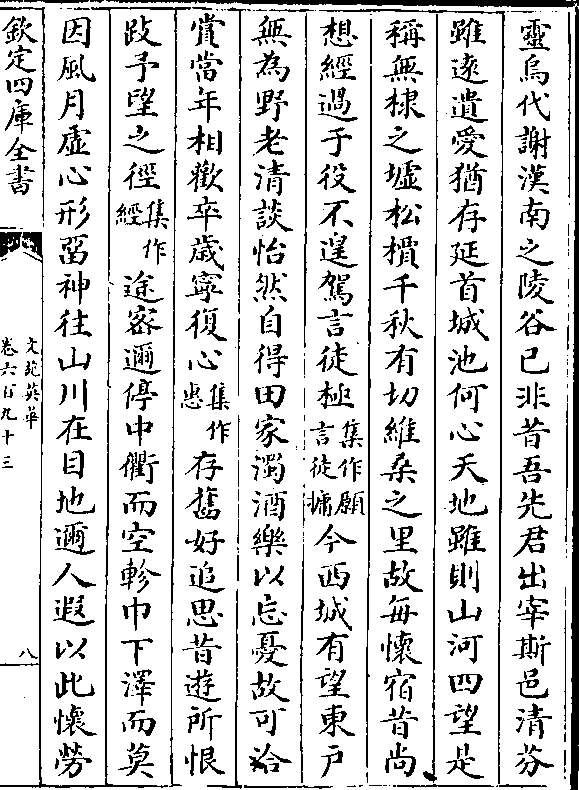 靈烏代謝漢南之陵谷已非昔吾先君出宰斯邑清芬
雖遠遺愛猶存延首城池何心天地雖則山河四望是
稱無棣之墟松檟千秋有切維桑之里故每懷宿昔尚
想經過于役不遑駕言徒極集作願言徒擁今西城有望東户
無為野老清談怡然自得田家濁酒樂以忘憂故可洽
賞當年相歡卒歲寧復心集作惠存舊好追思昔遊所恨
跂予望之徑集作經途密邇停中衢而空軫巾下澤而莫
因風月虛心形留神往山川在目地邇人遐以此懷勞
欽定四庫全書
文苑英華
卷六百九十三
八